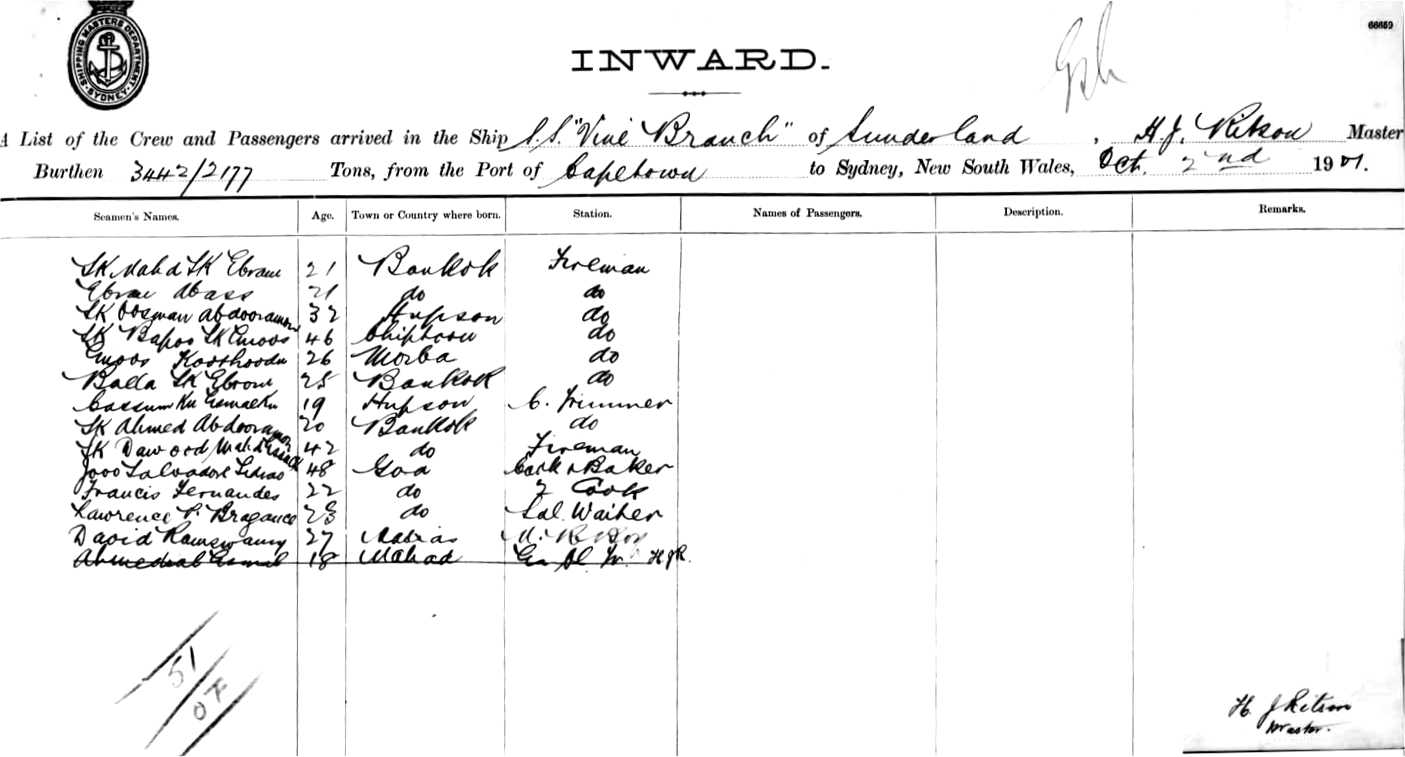 SHIPPING MASTERS DEPARTMENT
SYDNEY
66659
INWARD.
A List of the Crew and Passengers arrived in the Ship S.S. "Vine Branch" of Sunderland, H. J. Ritson Master
Burthen 3442/2177 Tons, from the Port of Capetown to Sydney, New South Wales, Oct. 2nd 1901.
Seamen's Names. Age. Town or Country where born. Station. Names of Passengers. Description. Remarks.
SK Mahd SK Ebram 21 Bankok Fireman
Ebram Abass 21 do do
SK Oosman Abdooramon 32 Hupson do
SK Bapoo SK Emoos 46 Chiploon do
Emoos Koothoodn 26 Morba do
Balla SK Ebram 25 Bankok do
Cassum Ku Esmael Ku 19 Hupson C. Trimmer
SK Ahmed Abdooramon 20 Bankok do
SK Dawood Mahd 42 do Fireman
Joao Salvadore 48 Goa Cook & Baker
Francis Fernandes 22 do 2 Cook
Lawrence P. Bragance 23 do Sal. Waiter
David Ramswamy 27 Madras M. R. Boy
18 Mahad H J R.
51
07
H. J Ritson
Master.